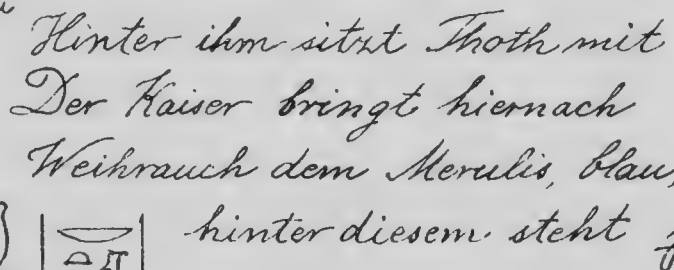 Hinter ihm sitzt Thoth mit
Der Kaiser bringt hiernach
Weihrauch dem Merulis, blau,
hinter diesem steht